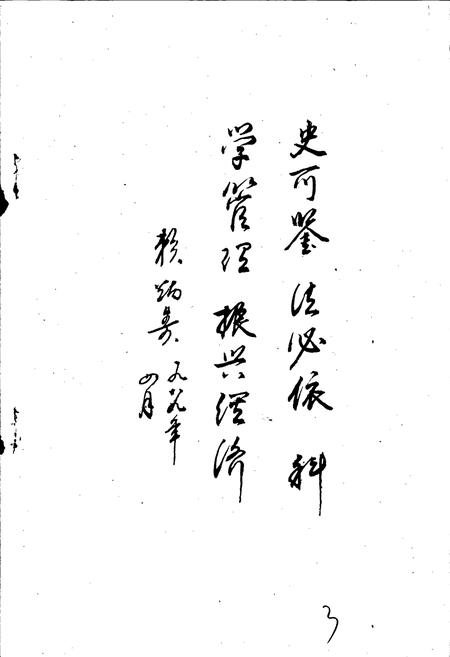 史可鉴 法必依 科
学管理 振兴经济
赖炳寿
一九八九年
四月
3